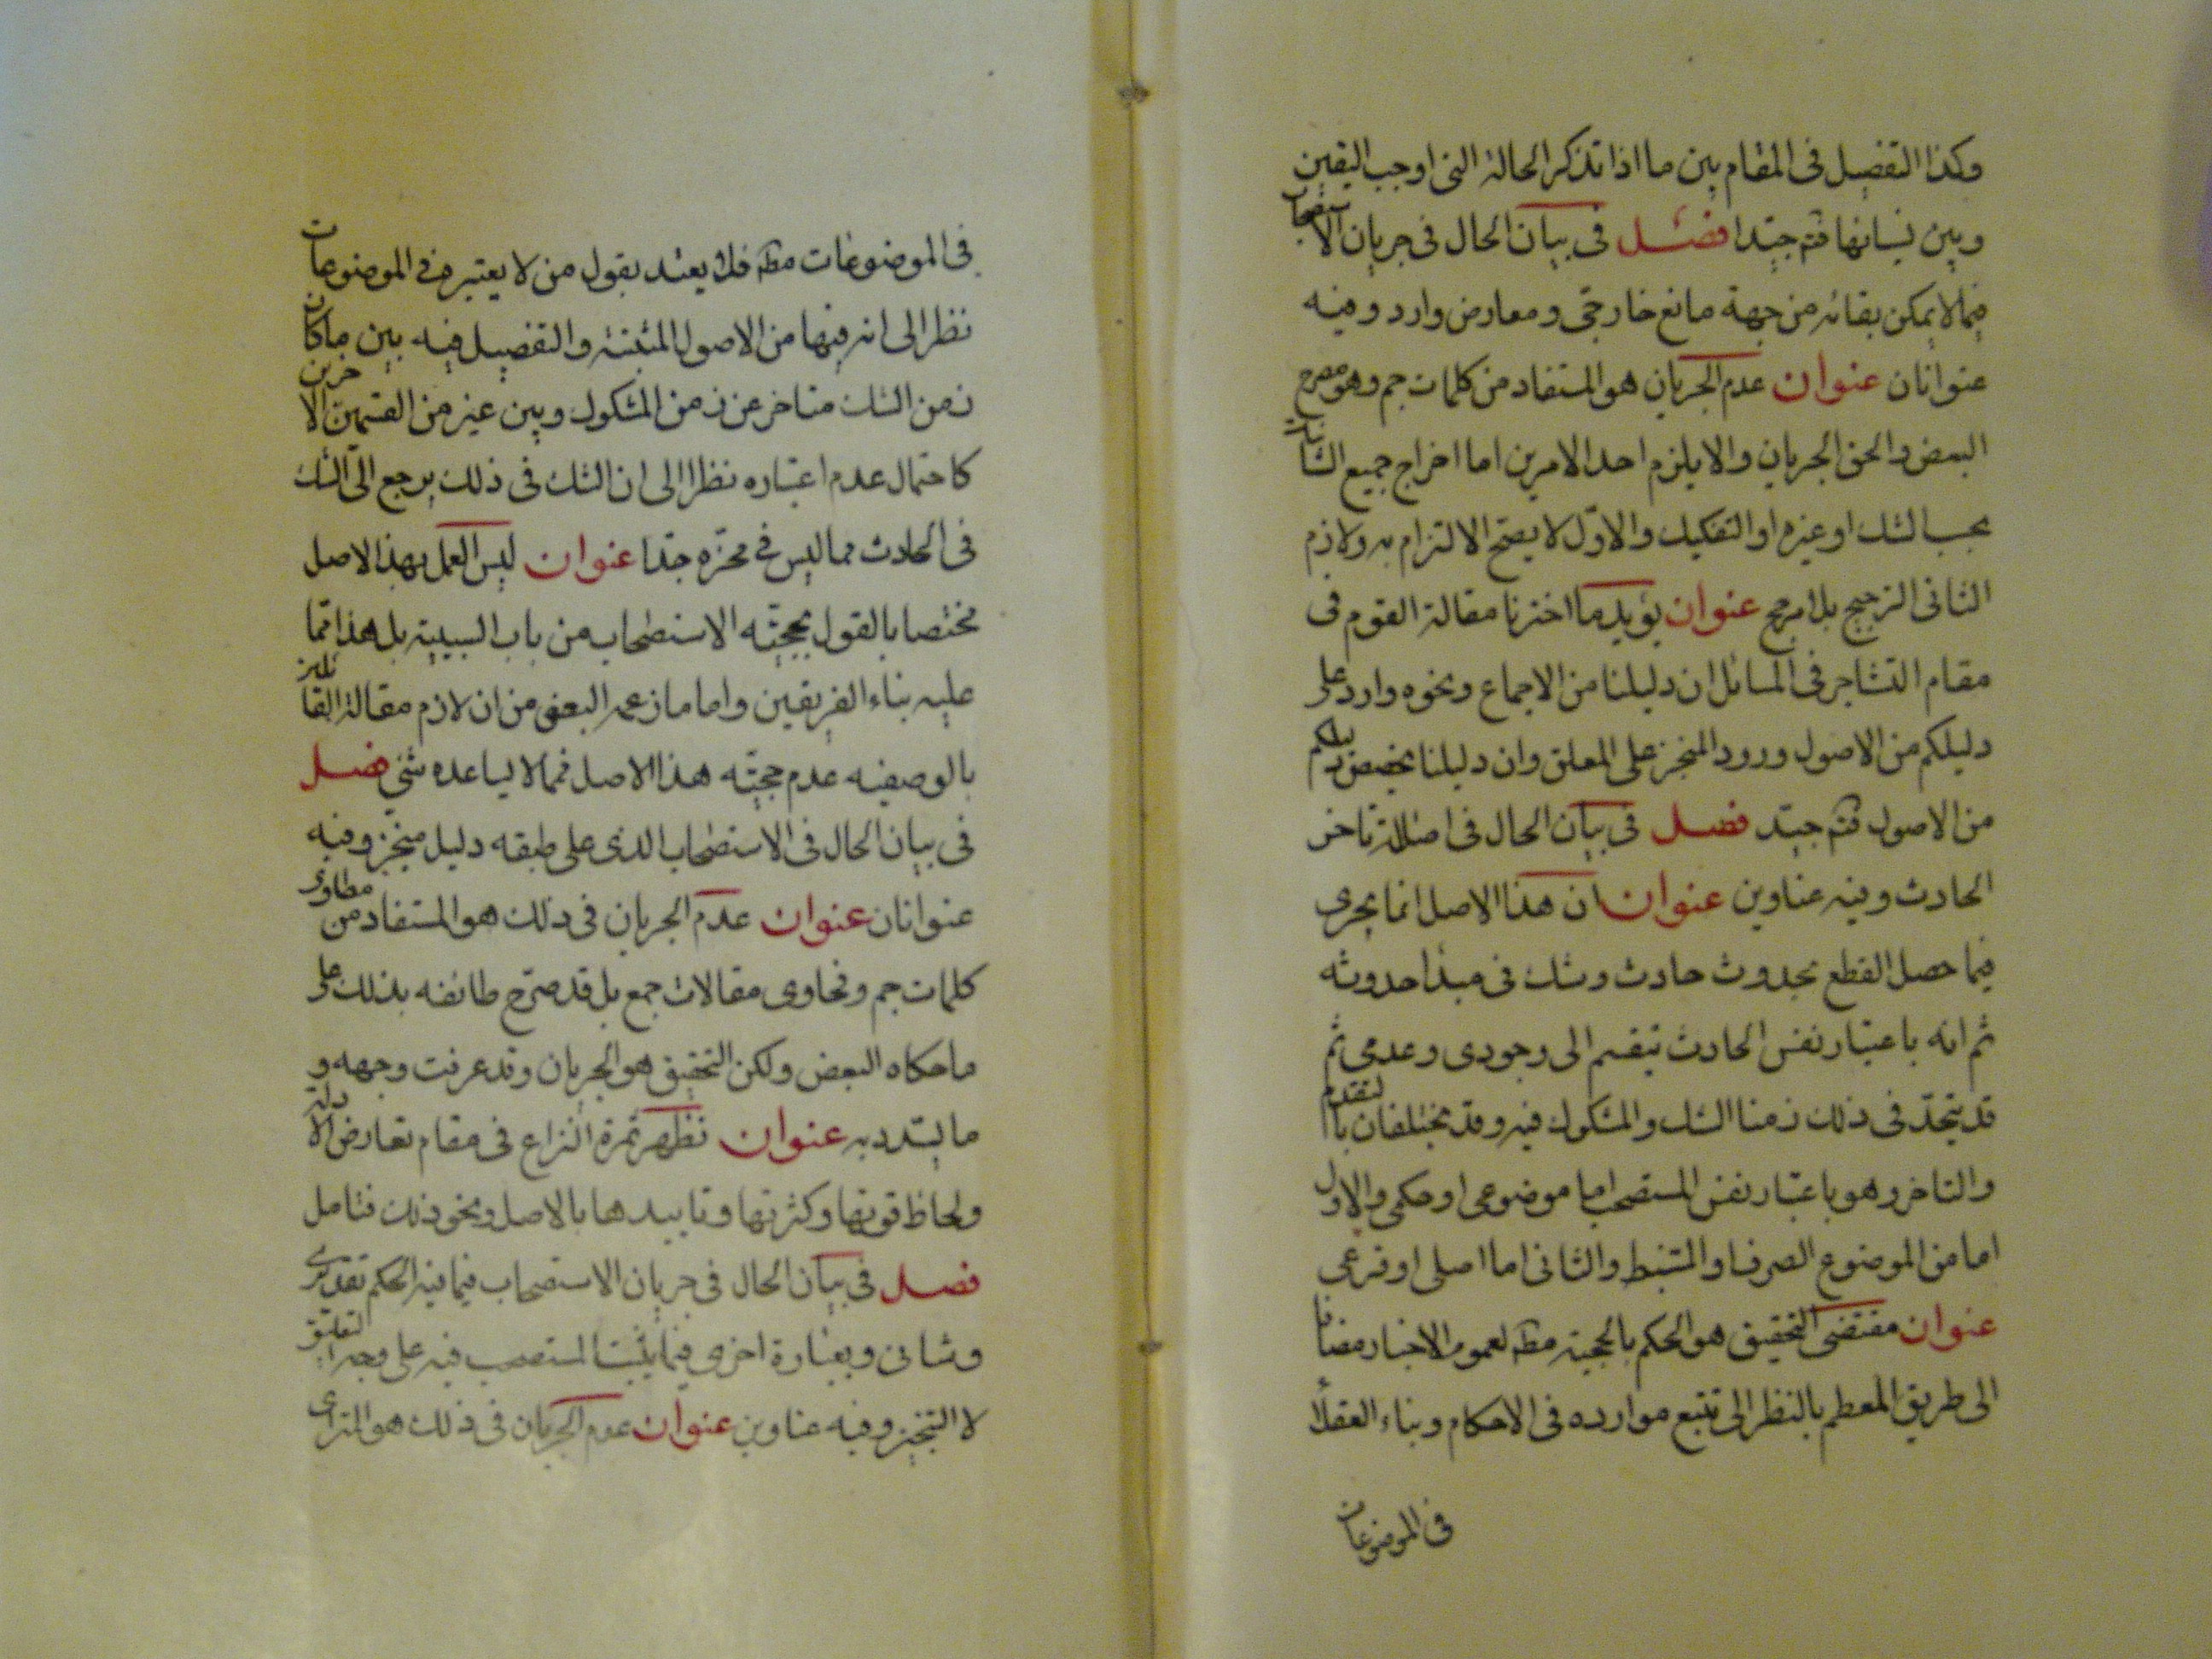 وكذا التفصيل فى المقام بين ما اذا تذكر الحالة التى اوجب اليقين
وبين نسيانها فتم جيدا فصل فى بيان الحال فى جريان الاستصحاب
فيما لا يمكن بقائه من جهة مانع خارجى ومعارض وارد وفيه
عنوانان عنوان عدم الجريان هو المستفاد من كلمات جم وهو مصرح
البعض والحق الجريان والا يلزم احد الامرين اما اخراج جميع
بحسب الشك او غيره او التفكيك والاوّل لا يصح الالتزام به ولازم
الثانى الترجيح بلا مرجح عنوان يؤيد ما اخترنا مقالة القوم فى
مقام التشاجر فى المسائل ان دليلنا من الاجماع ونحوه وارد على
دليلكم من الاصول ورود المنجز على المعلق وان دليلنا يخصص دليلكم
من الاصول فتم جيد فصل فى بيان الحال فى اصالة تاخر
الحادث وفيه عناوين عنوان ان هذا الاصل انما يجرى
فيما حصل القطع بحدوث حادث وشك فى مبدأ حدوثه
ثم انه باعتبار نفس الحادث ينقسم الى وجودى وعدمى ثم
قد يتحد فى ذلك زمنا الشك والمشكوك فيه وقد يختلفان بالتقدم
والتاخر وهو باعتبار نفس المستصحب اما موضوعى او حكمى والاول
اما من الموضوع الصرف او المستنبط والثانى اما اصلى او فرعى
عنوان مقتضى التحقيق هو الحكم بالحجية مطه لعموم الاخبار مضافا
الى طريق المعظم بالنظر الى تتبع موارده فى الاحكام وبناء العقلاء
فى الموضوعات
فى الموضوعات مطه فلا يعتد بقول من لا يعتبره فى الموضوعات
نظرا الى انه فيها من الاصول المثبتة والتفصيل فيه بين ما كان
زمن الشك متاخر عن زمن المشكول وبين غيره من القسمين الاخرين
كاحتمال عدم اعتباره نظرا الى ان الشك فى ذلك يرجع الى الشك
فى الحادث مما ليس فى محزه جدا عنوان ليس العمل بهذا الاصل
مختصا بالقول بحجية الاستصحاب من باب السببية بل هذا مما
عليه بناء الفريقين واما ما زعمه البعض من ان لازم مقالة القائلين
بالوصفيه عدم حجيته هذا الاصل فمما لا يساعده شئ فصل
فى بيان الحال فى الاستصحاب الذى على طبقه دليل منجز وفيه
عنوانان عنوان عدم الجريان فى ذلك هو المستفاد من مطاوى
كلمات جم وفحاوى مقالات جمع بل قد صرّح طائفه بذلك على
ما حكاه البعض ولكن التحقيق هو الجريان وقد عرفت وجهه و
ما يسترد به عنوان تظهر ثمرة النزاع فى مقام تعارض الادلة
ولحاظ قوتها وكثرتها وتاييدها بالاصل ونحو ذلك فتامل
فصل فى بيان الحال فى جريان الاستصحاب فيما فيه الحكم تقديرى
وشانى وبعبارة اخرى فيما يثبت المستصحب فيه على وجه التعليق
لا التنجيز وفيه عناوين عنوان عدم الجريان فى ذلك هو